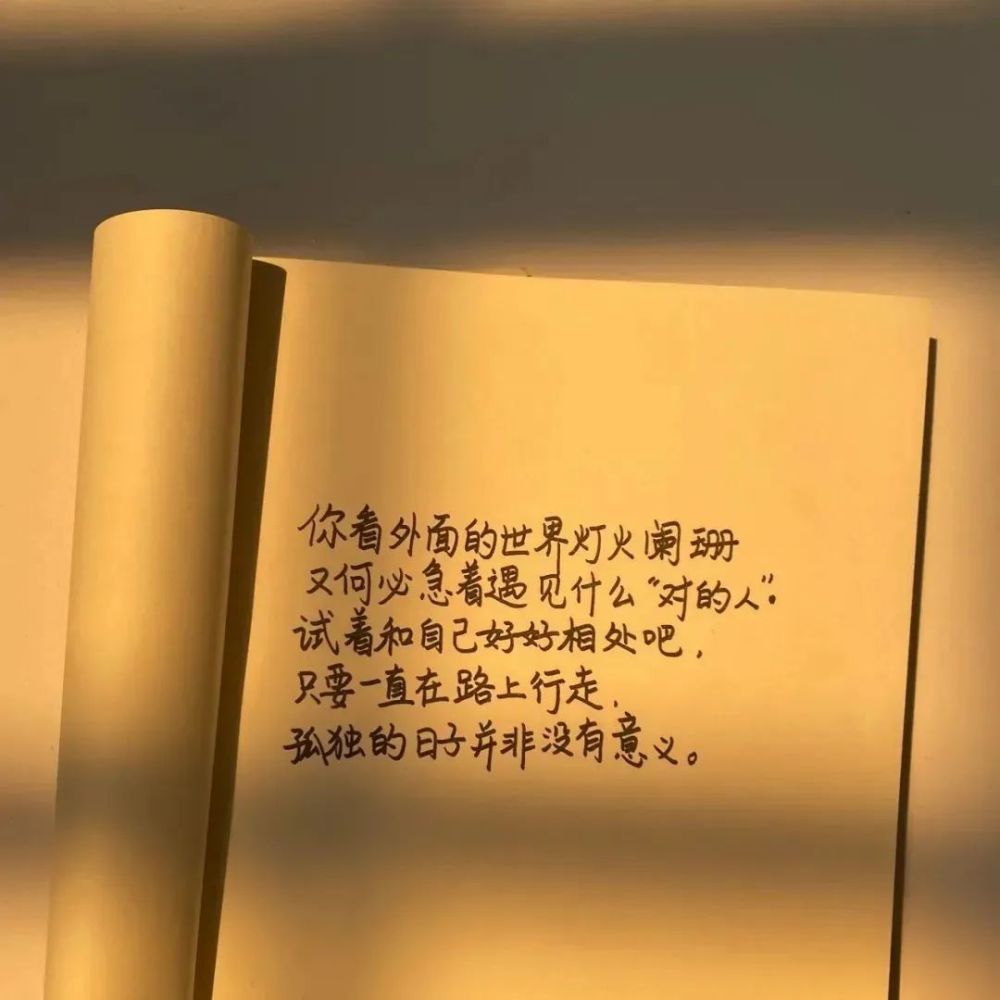 你看外面的世界灯火阑珊
又何必急着遇见什么“对的人”.
试着和自己好好相处吧,
只要一直在路上行走,
孤独的日子并非没有意义。